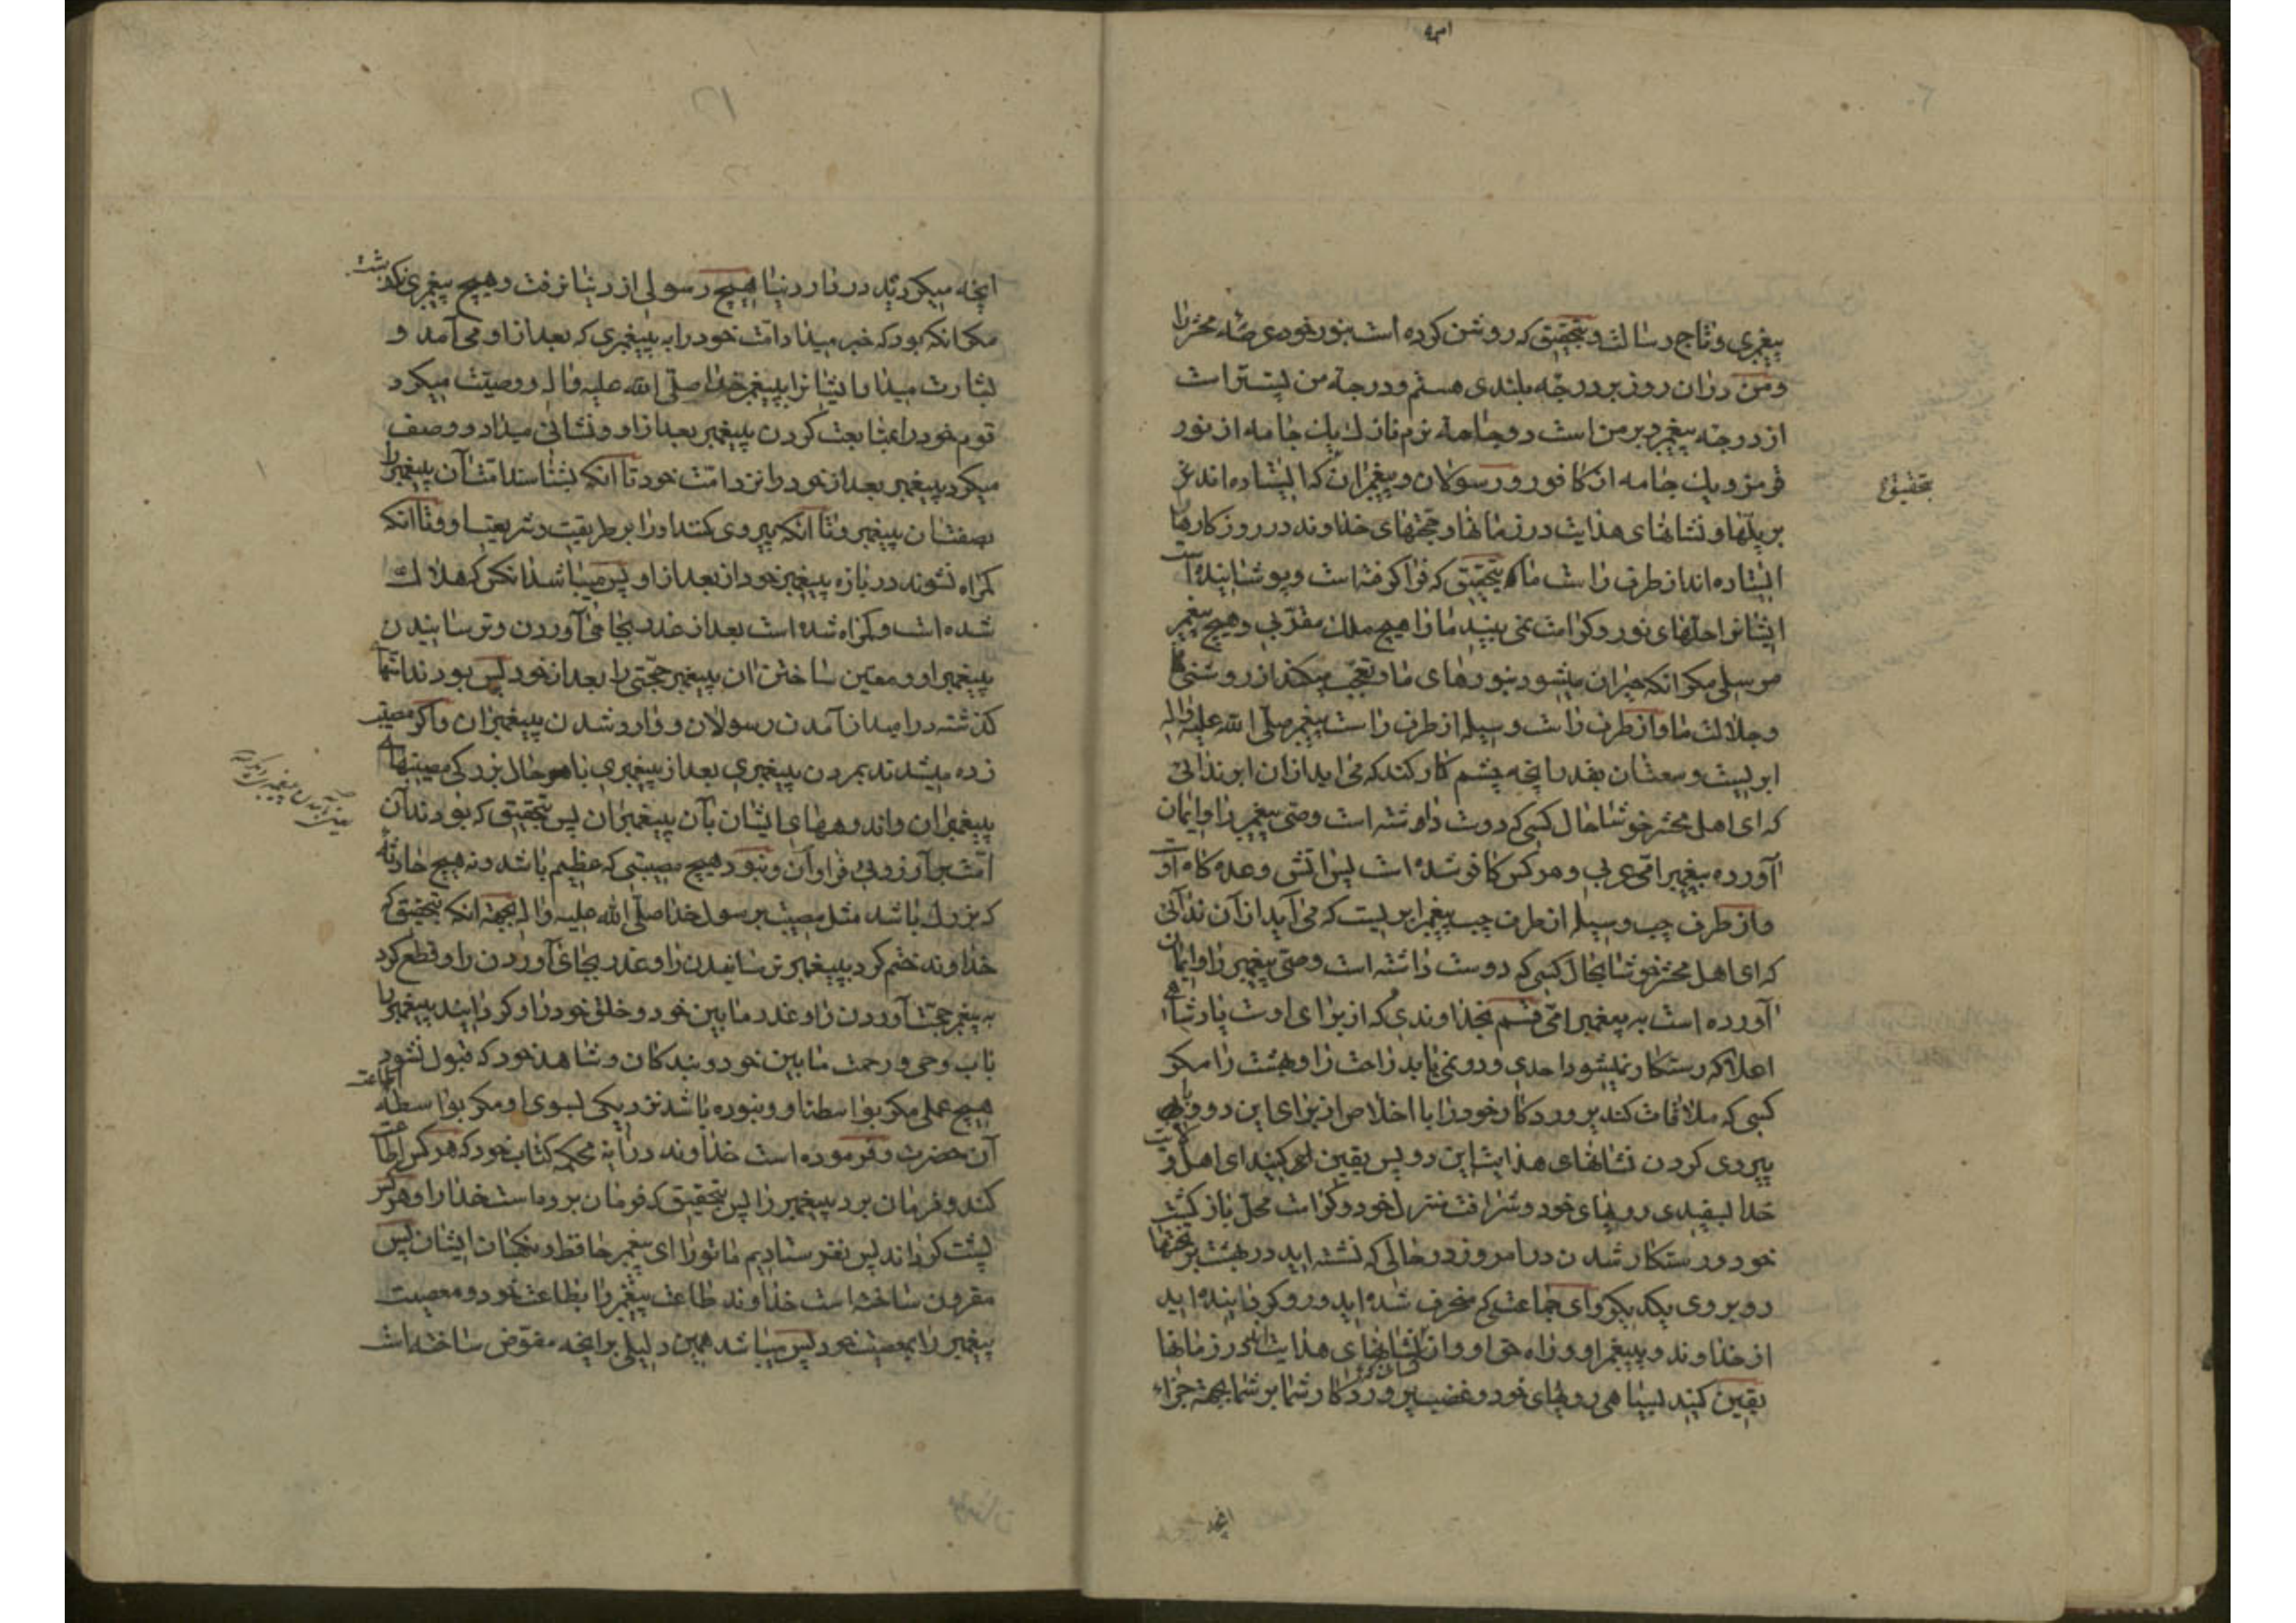 پیغمبری و تاج رسالت و بتحقیق که روشن کرده است بنور خود عرصه محشر را
و من دران روز بر درجه بلندی هستم و درجه من پستتر است
از درجه پیغمبر و بر من است دو جامه نرم نازك یك جامه از نور
قرمز و یك جامه از کافور و رسولان و پیغمبران که ایستاده اند
بر پلّها و نشانهای هدایت در زمانها و حجّتهای خداوند در روزکارها
ایستاده اند از طرف راست ما که بتحقیق که فرا کرفته است و پوشانیده است
ایشانرا حلّهای نور و کرامت نمی بیند ما را هیچ ملك مقرّبی و هیچ پیغمبر
مرسلی مکر انکه حیران میشود بنورهای ما و تعجّب میکند از روشنی
و جلالت ما و از طرف راست وسیله از طرف راست پیغمبر صلّی الله علیه و اله
ابریست وسعتان بقدر انچه چشم کار کند که می اید از ان ابر ندائی
که ای اهل محشر خوشا حال کسی که دوست داشته است وصیّ پیغمبر را و ایمان
آورده پیغمبر امّی عربی و هر کس کافر شده است پس اتش وعده کاه اوست
و از طرف چپ وسیله از طرف چپ پیغمبر ابریست که می آید از آن ندائی
که ای اهل محشر خوشا بحال کسی که دوست داشته است وصیّ پیغمبر را و ایمان
آورده است به پیغمبر امّی قسم بخداوندی که از برای اوست پادشاهی
اعلا که رستکار نمیشود احدی و رو نمی یابد راحت را و بهشت را مکر
کسی که ملاقات کند پرورد کار خود را با اخلاص از برای این دو و با
پیروی کردن نشانهای هدایت این دو پس یقین کنید ای اهل ولایت
خدا بسفیدی رویهای خود و شرافت منزل خود و کرامت محلّ بازکشت
خود و رستکار شدن در امروز در حالی که نشسته اید در بهشت بر تختها
رو بروی یکدیکر و ای جماعتی که منحرف شده اید و رو کردانیده اید
از خداوند و پیغمبر او و راه حق او و از نشانهای هدایت در زمانها
یقین کنید بسیاهی رویهای خود و غضب پروردکار شما بر شما بجهة جزاء
انچه میکردید در دار دنیا هیچ رسولی از دنیا نرفت و هیچ پیغمبری نکذشت
مکر انکه بود که خبر میداد امّت خود را به پیغمبری که بعد از او می آمد و
بشارت میداد ایشانرا بپیغمبر خدا صلّی الله علیه و اله و وصیّت میکرد
قوم خود را بمتابعت کردن پیغمبر بعد از او و نشانی میداد و وصف
میکرد پیغمبر بعد از خود را نزد امّت خود تا انکه بشناسند امّتان پیغمبر را
بصفتشان پیغمبر و تا انکه پیروی کنند او را بر طریقت و شریعت او و تا انکه
کمراه نشوند در باره پیغمبر خود از بعد از او پس میباشد انکس که هلاك
شده است و کمراه شده است بعد از عذر بجا می آوردن و ترسانیدن
پیغمبر او و معیّن ساختن ان پیغمبر حجّتی را بعد از خود پس بودند امّتهای
کذشته در امید از آمدن رسولان و وارد شدن پیغمبران و اکر مصیبت
زده میشدند بمردن پیغمبری بعد از پیغمبری با حال بزرکی مصیبتهای
پیغمبران و اندوههای ایشان بآن پیغمبران پس بتحقیق که بودند آن
امّت بر آرزوی فراوان و نبود هیچ مصیبتی که عظیم باشد و نه هیچ حادثه
که بزرك باشد مثل مصیبت بر رسول خدا صلّی الله علیه و اله بجهة انکه بتحقیق که
خداوند ختم کرد بپیغمبر ترسانیدن را و عذر بجای آوردن را و قطع کرد
به پیغمبر حجّت آوردن را و عذر ما بین خود و خلق خود را و کردانید پیغمبر را
باب وحی و رحمت ما بین خود و بندکان و شاهد خود که قبول نشود
هیچ عملی مکر بواسطه او و نبوده باشد نزدیکی بسوی او مکر بواسطه اطاعت
آن حضرت و فرموده است خداوند در آیه محکمه کتاب خود که هر کس اطاعت
کند و فرمان برد پیغمبر را پس بتحقیق که فرمان برده است خدا را و هر کس
پشت کرداند پس نفرستادیم ما تو را ای پیغمبر حافظ و نکهبان ایشان پس
مقرون ساخته است خداوند طاعت پیغمبر را بطاعت خود و معصیت
پیغمبر را بمعصیت خود پس میباشد همین دلیلی بر انچه مفوّض ساخته است